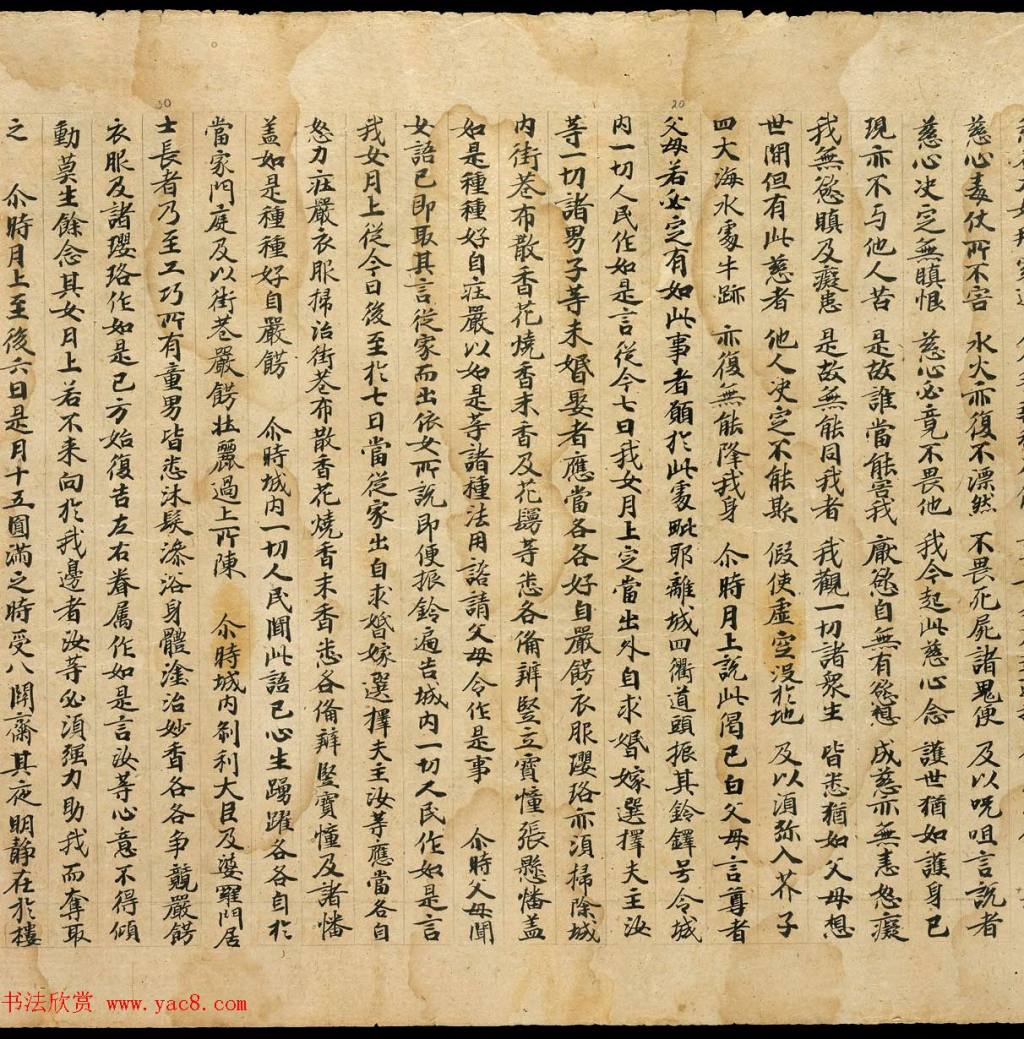 慈心毒仗所不害 水火亦復不漂然 不畏死屍諸鬼便 及以呪咀言說者
慈心决定無瞋恨 慈心必竟不畏他 我今起此慈心念 護世猶如護身已
現亦不与他人苦 是故誰當能害我 厭慾自無有慾想 成慈亦無恚怒癡
我無慾瞋及癡恚 是故無能同我者 我觀一切諸衆生 皆悉猶如父母想
世間但有此慈者 他人决定不能欺 假使虛空没於地 及以湏弥入芥子
四大海水處牛跡 亦復無能降我身 尒時月上說此偈已白父母言尊者
父母若必定有如此事者願於此處毗耶離城四衢道頭振其鈴鐸号令城
内一切人民作如是言從今七日我女月上定當出外自求婚嫁選擇夫主汝
等一切諸男子等未婚娶者應當各各好自嚴餝衣服瓔珞亦湏掃除城
内街巷布散香花燒香末香及花鬘等悉各俻辦竪立寶幢張懸幡盖
如是種種好自莊嚴以如是等諸種法用諮請父母令作是事 尒時父母聞
女語已即取其言從家而出依女所說即便振鈴遍告城内一切人民作如是言
我女月上從今日後至於七日當從家出自求婚嫁選擇夫主汝等應當各自
努力莊嚴衣服掃治街巷布散香花燒香末香悉各俻辦竪寶幢及諸幡
盖如是種種好自嚴餝 尒時城内一切人民聞此語已心生踴躍各各自於
當家門庭及以街巷嚴餝壯麗過上所陳 尒時城内刹利大臣及婆羅門居
士長者乃至工巧所有童男皆悉沐髮澡浴身體塗治妙香各各争競嚴餝
衣服及諸瓔珞作如是已方始復告左右眷属作如是言汝等心意不得傾
動莫生餘念其女月上若不来向於我邊者汝等必湏强力助我而奪取
之 尒時月上至後六日是月十五圓滿之時受八關齋其夜明静在於樓
20
30
书法欣赏 www.yac8.com